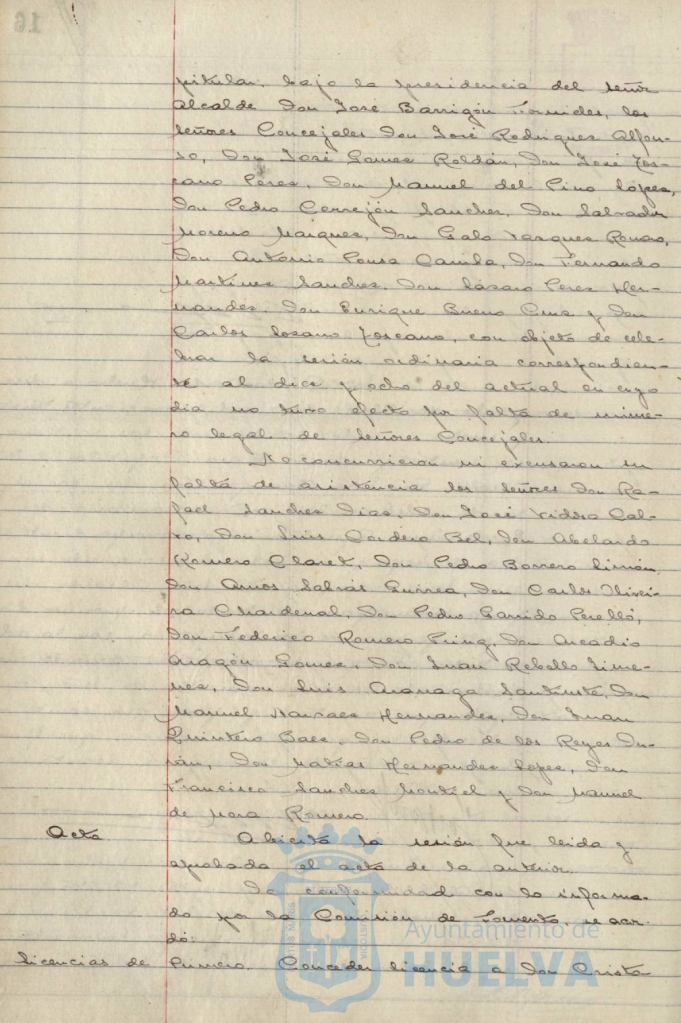 pitular, bajo la presidencia del señor
Alcalde Don José Barrigón Fornieles, los
señores Concejales Don José Rodríguez Alfon-
so, Don José Gomez Roldán, Don José Tos-
cano Pérez, Don Manuel del Pino López,
Don Pedro Cerrejón Sanchez, Don Salvador
Moreno Marquez, Don Galo Vazquez Romero,
Don Antonio Ponce Camila, Don Fernando
Martinez Sanchez, Don Lázaro Perez Her-
nandez, Don Enrique Bueno Cruz y Don
Carlos Lozano Toscano, con objeto de cele-
brar la sesión ordinaria correspondien-
te al diez y ocho del actual en cuyo
dia no tuvo efecto por falta de núme-
ro legal de señores Concejales.
No concurrieron ni excusaron su
falta de asistencia los señores Don Ra-
fael Sanchez Diaz, Don José Isidro Cal-
vo, Don Luis Cordero Bel, Don Abelardo
Romero Claret, Don Pedro Borrero Limón,
Don Amós Sabrás Gurrea, Don Carlos Olivei-
ra Chardenal, Don Pedro Garrido Perelló,
Don Federico Romero Pring, Don Arcadio
Aragón Gomez, Don Juan Rebollo Jime-
nez, Don Luis Aranaga Santuste, Don
Manuel Narvaez Hernandez, Don Juan
Quintero Baez, Don Pedro de los Reyes Du-
rán, Don Matías Hernandez López, Don
Francisco Sanchez Montiel y Don Manuel
de Mora Romero.
Acta Abierta la sesión fue leida y
aprobada el acta de la anterior.
De conformidad con lo informa-
do por la Comisión de Fomento, se acor-
dó:
licencias de Primero. Conceder licencia a Don Crista
Ayuntamiento de
HUELVA
16